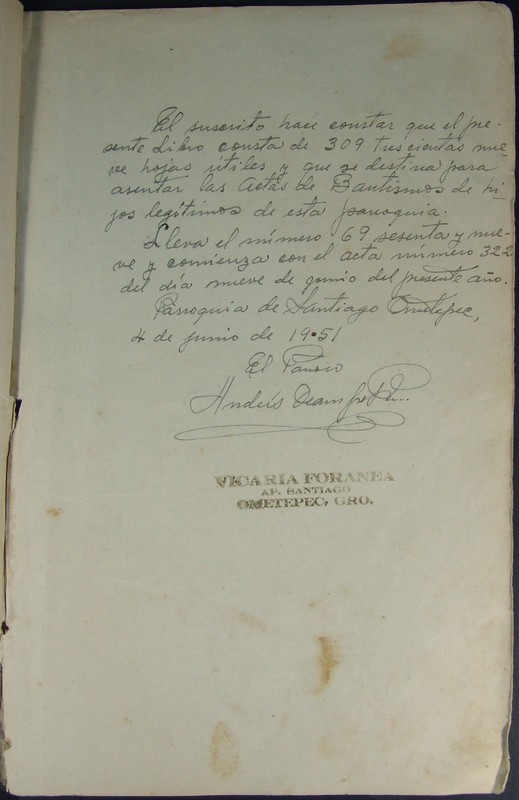 El suscrito hace constar que el pre-
sente Libro consta de 309 trescientas nue-
ve hojas útiles y que se destina para
asentar las Actas de Bautismos de hi-
jos legítimos de esta parroquia.
Lleva el número 69 sesenta y nue-
ve y comienza con el acta numero 322
del día nueve de junio del presente año.
Parroquia de Santiago Ometepec,
4 de junio de 1951
El Párroco
Andrés
VICARIA FORANEA
AP. SANTIAGO
OMETEPEC, GRO.